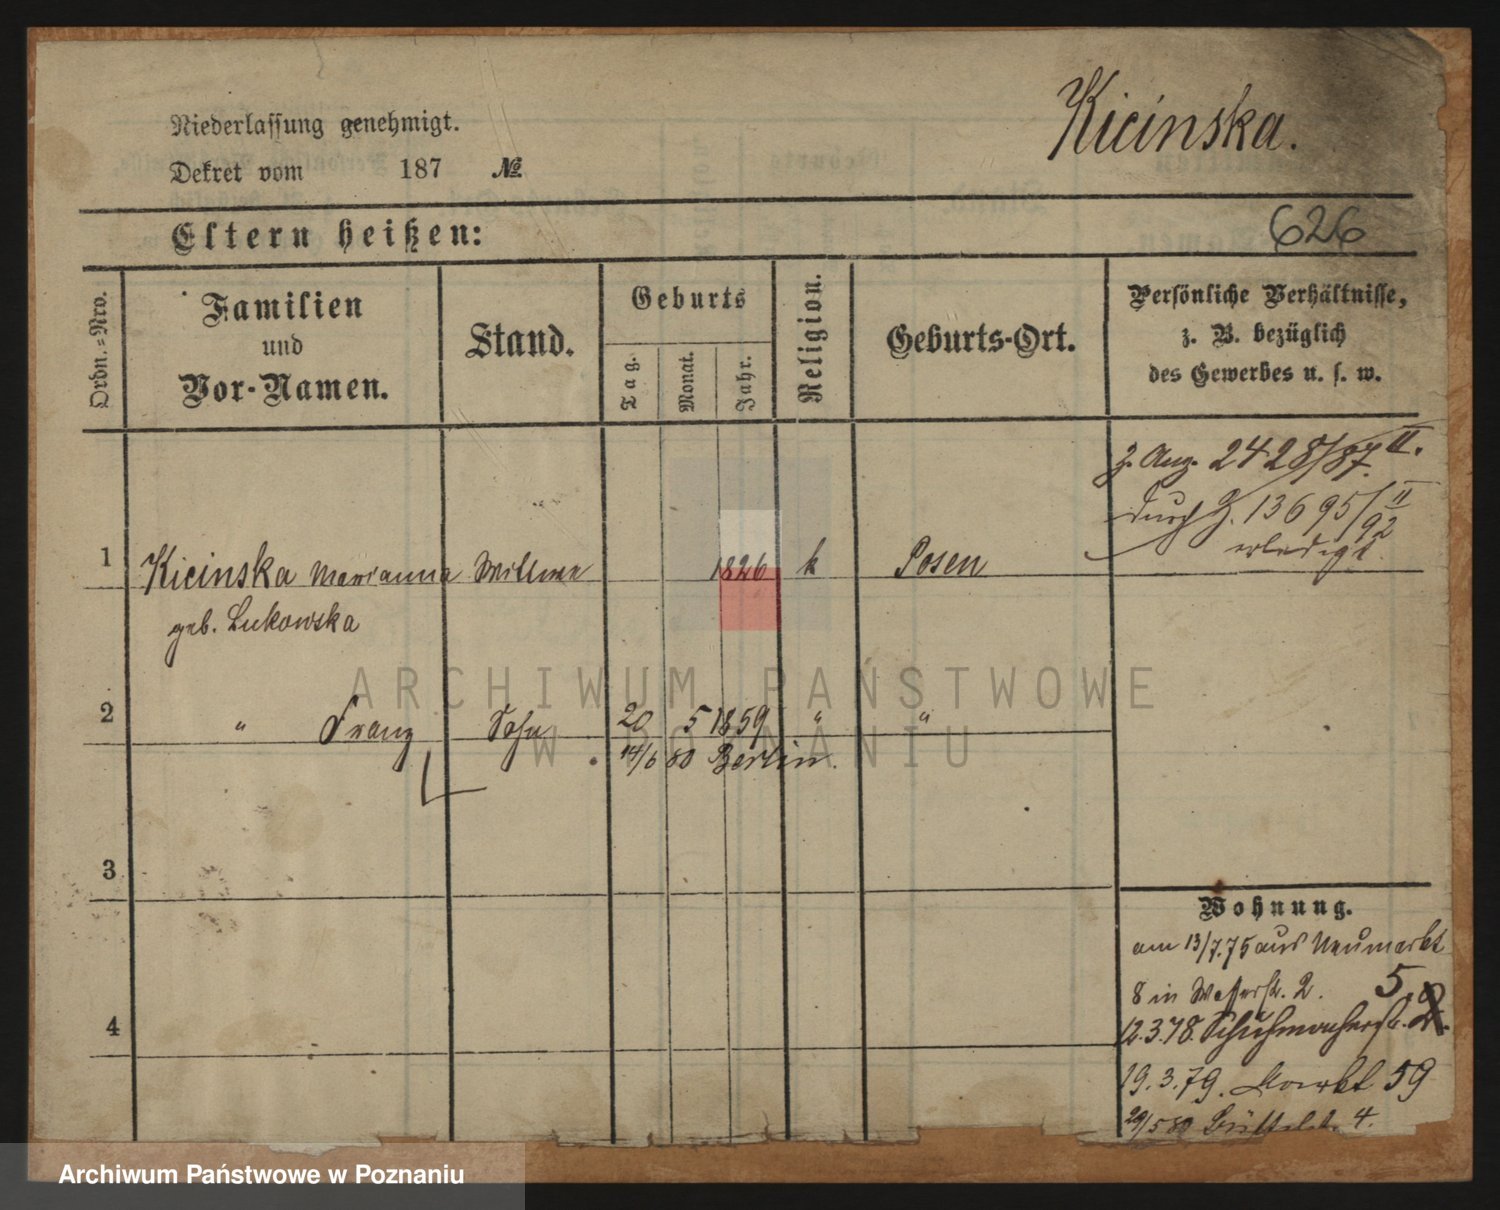 Kicinska.
Niederlassung genehmigt.
Dekret vom 187 №
626
Eltern heißen:
Ordn.-Nro.
Familien
und
Vor-Namen.
Stand.
Geburts
Tag.
Monat.
Jahr.
Religion.
Geburts-Ort.
Persönliche Verhältnisse,
z. B. bezüglich
des Gewerbes u. s. w.
z. Anz. 2428/87. II.
durch Z. 13695/92 II
erledigt.
1 Kicinska Marianna Wittwe 1826 k Posen
geb. Lukowska
2 " Franz Sohn 20 5 1859 " "
14/6 80 Berlin.
3
4
Wohnung.
am 13/7.75 aus Neumarkt
8 in Wasserstr. 2.
5.
12.3.78. Schuhmacherstr.
19.3.79. Markt 59
29/5 80 Büttelst. 4.
ARCHIWUM PAŃSTWOWE
W POZNANIU
Archiwum Państwowe w Poznaniu